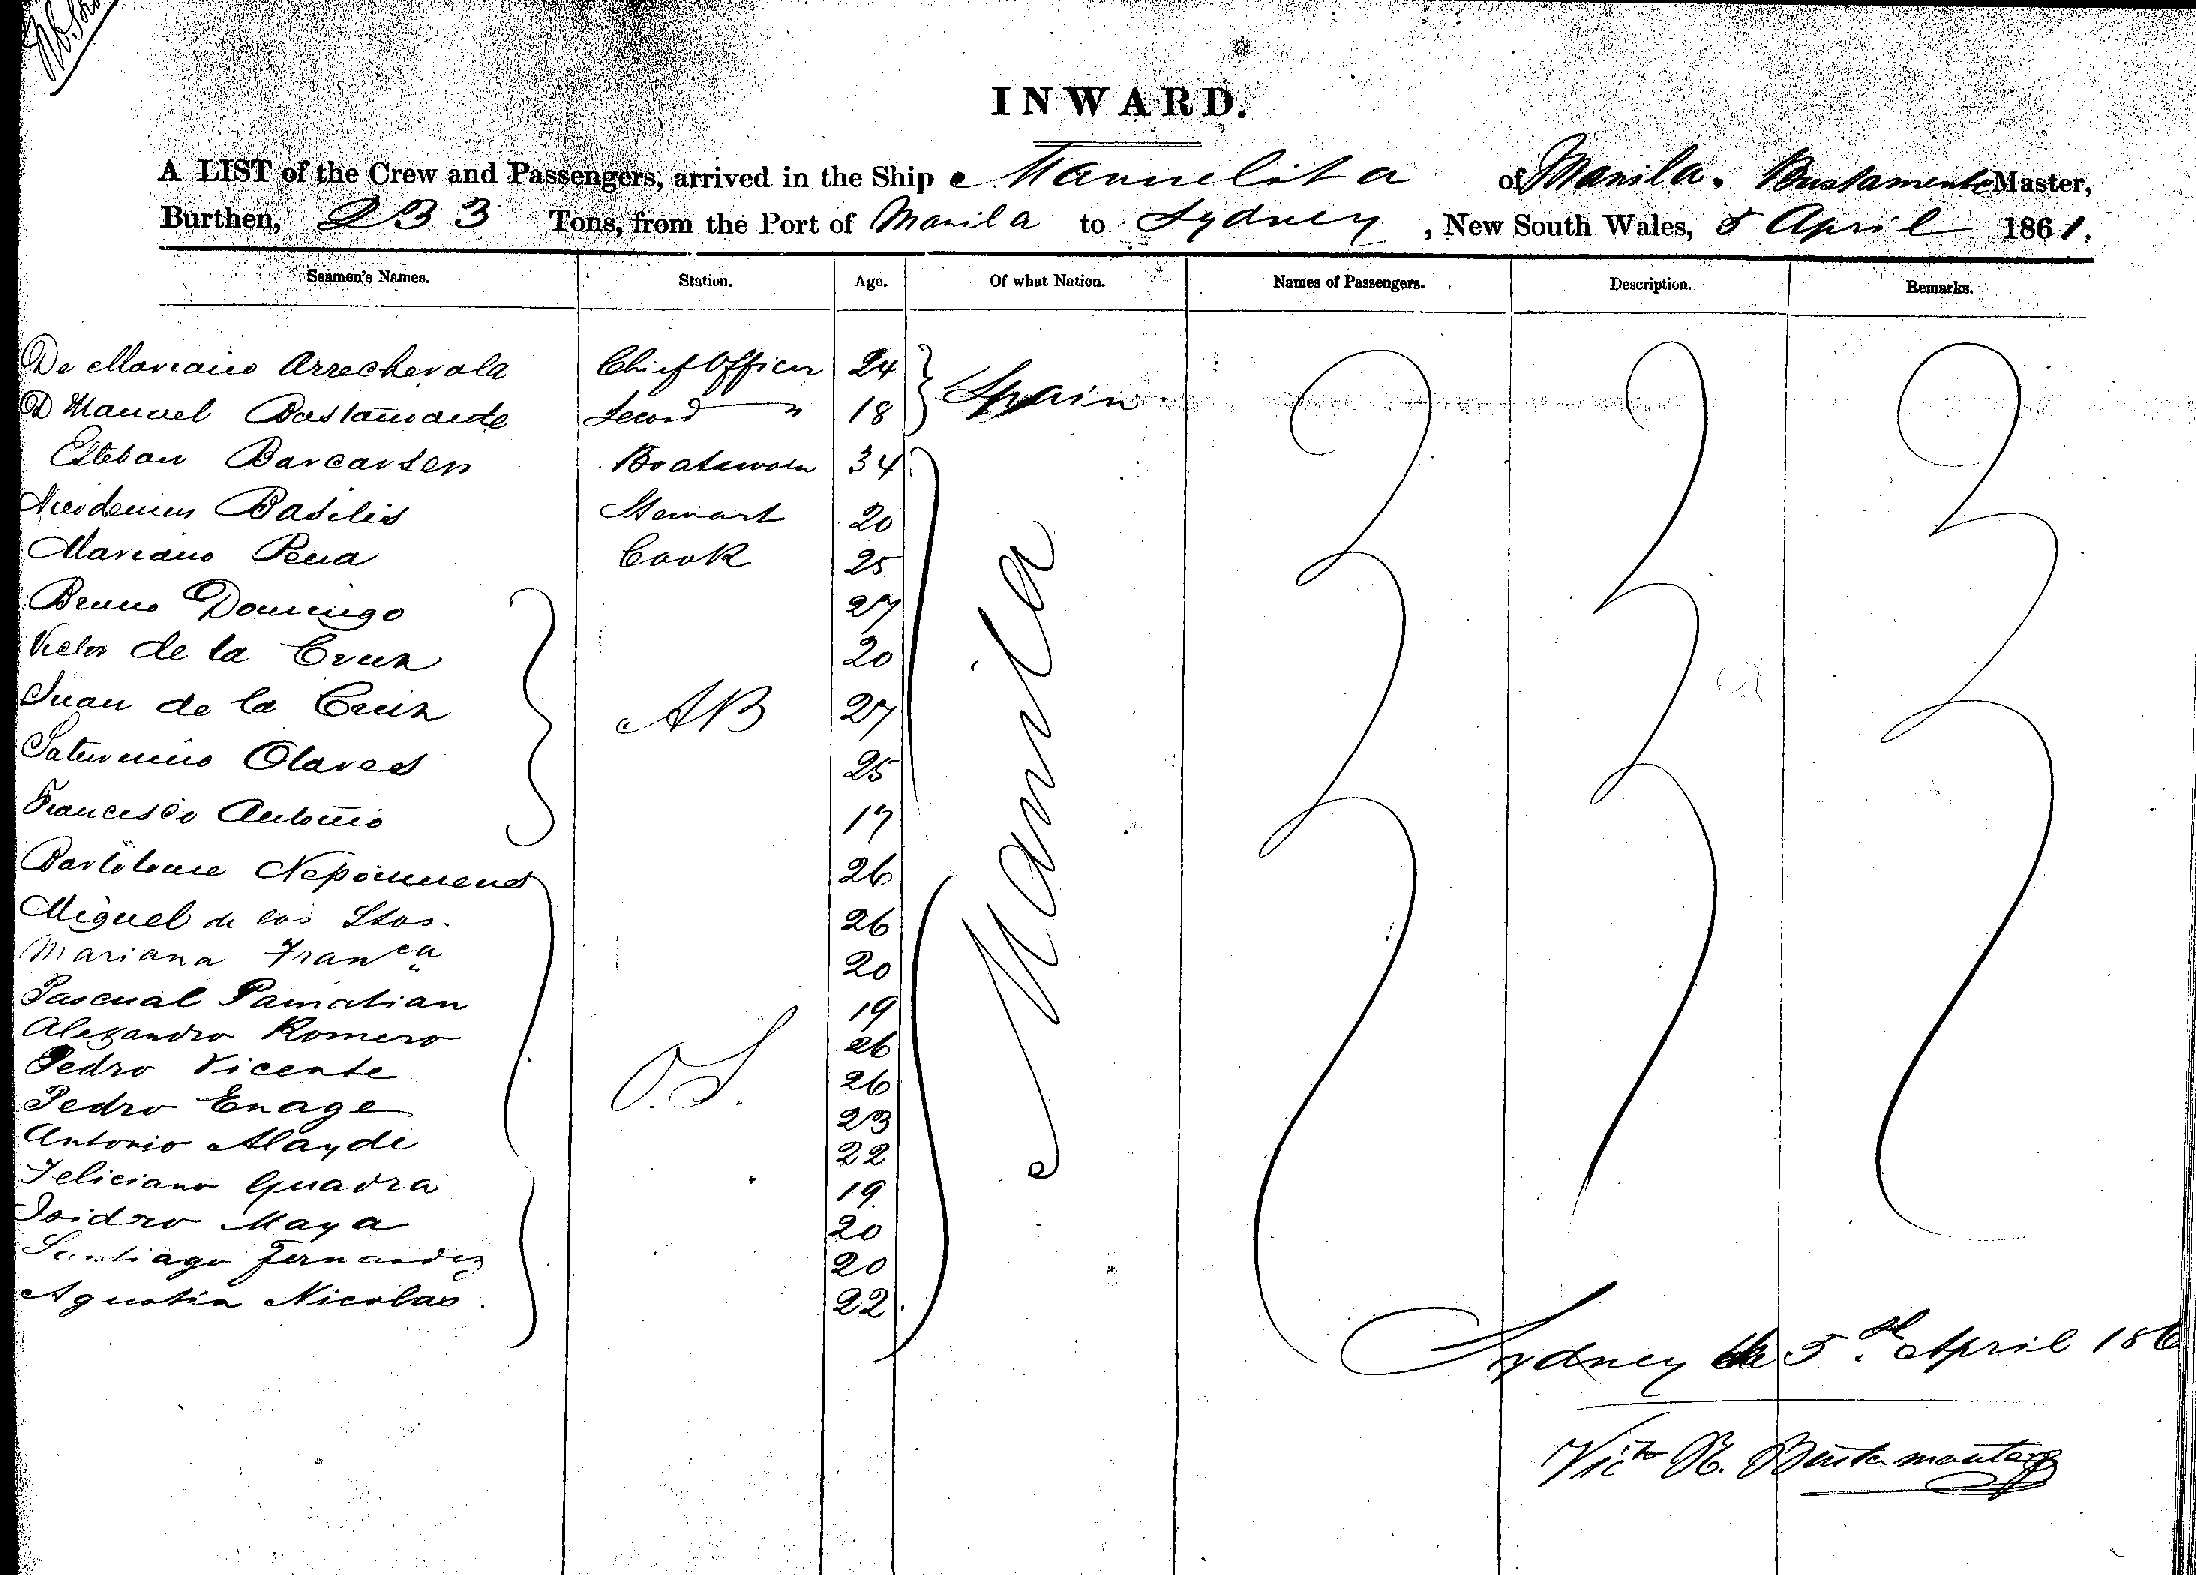 INWARD.
A LIST of the Crew and Passengers, arrived in the Ship Manuelita of Manila. Bustamente Master,
Burthen, 233 Tons, from the Port of Manila to Sydney, New South Wales, 5 April 1861.
Seamen's Names. Station. Age. Of what Nation. Names of Passengers. Description. Remarks.
Dn Mariano Arrechevala Chief Officer 24 Spain
D Manuel Bustamante Second " 18
Esteban 34 Manila
Nicodemus Basilis Stewart 20
Mariano Pena Cook 25
Bruno Domingo 27
Victor de la Cruz 20
Juan de la Cruz AB 27
Saturnino Olares 25
Francisco Antonio 17
Bartolome Nepomuceno 26
Miguel de los Stos. 26
Mariana Franca 20
Pascual Pamatian 19
Alexandro Romero 26
Pedro Vicente O.S. 26
Pedro Enage 23
Antonio Alayde 22
Feliciano Quadra 19
Isidro Maya 20
Santiago Fernandez 20
Agustin Nicolas. 22
Sydney the 5th April 186
Victo R. Bustamante